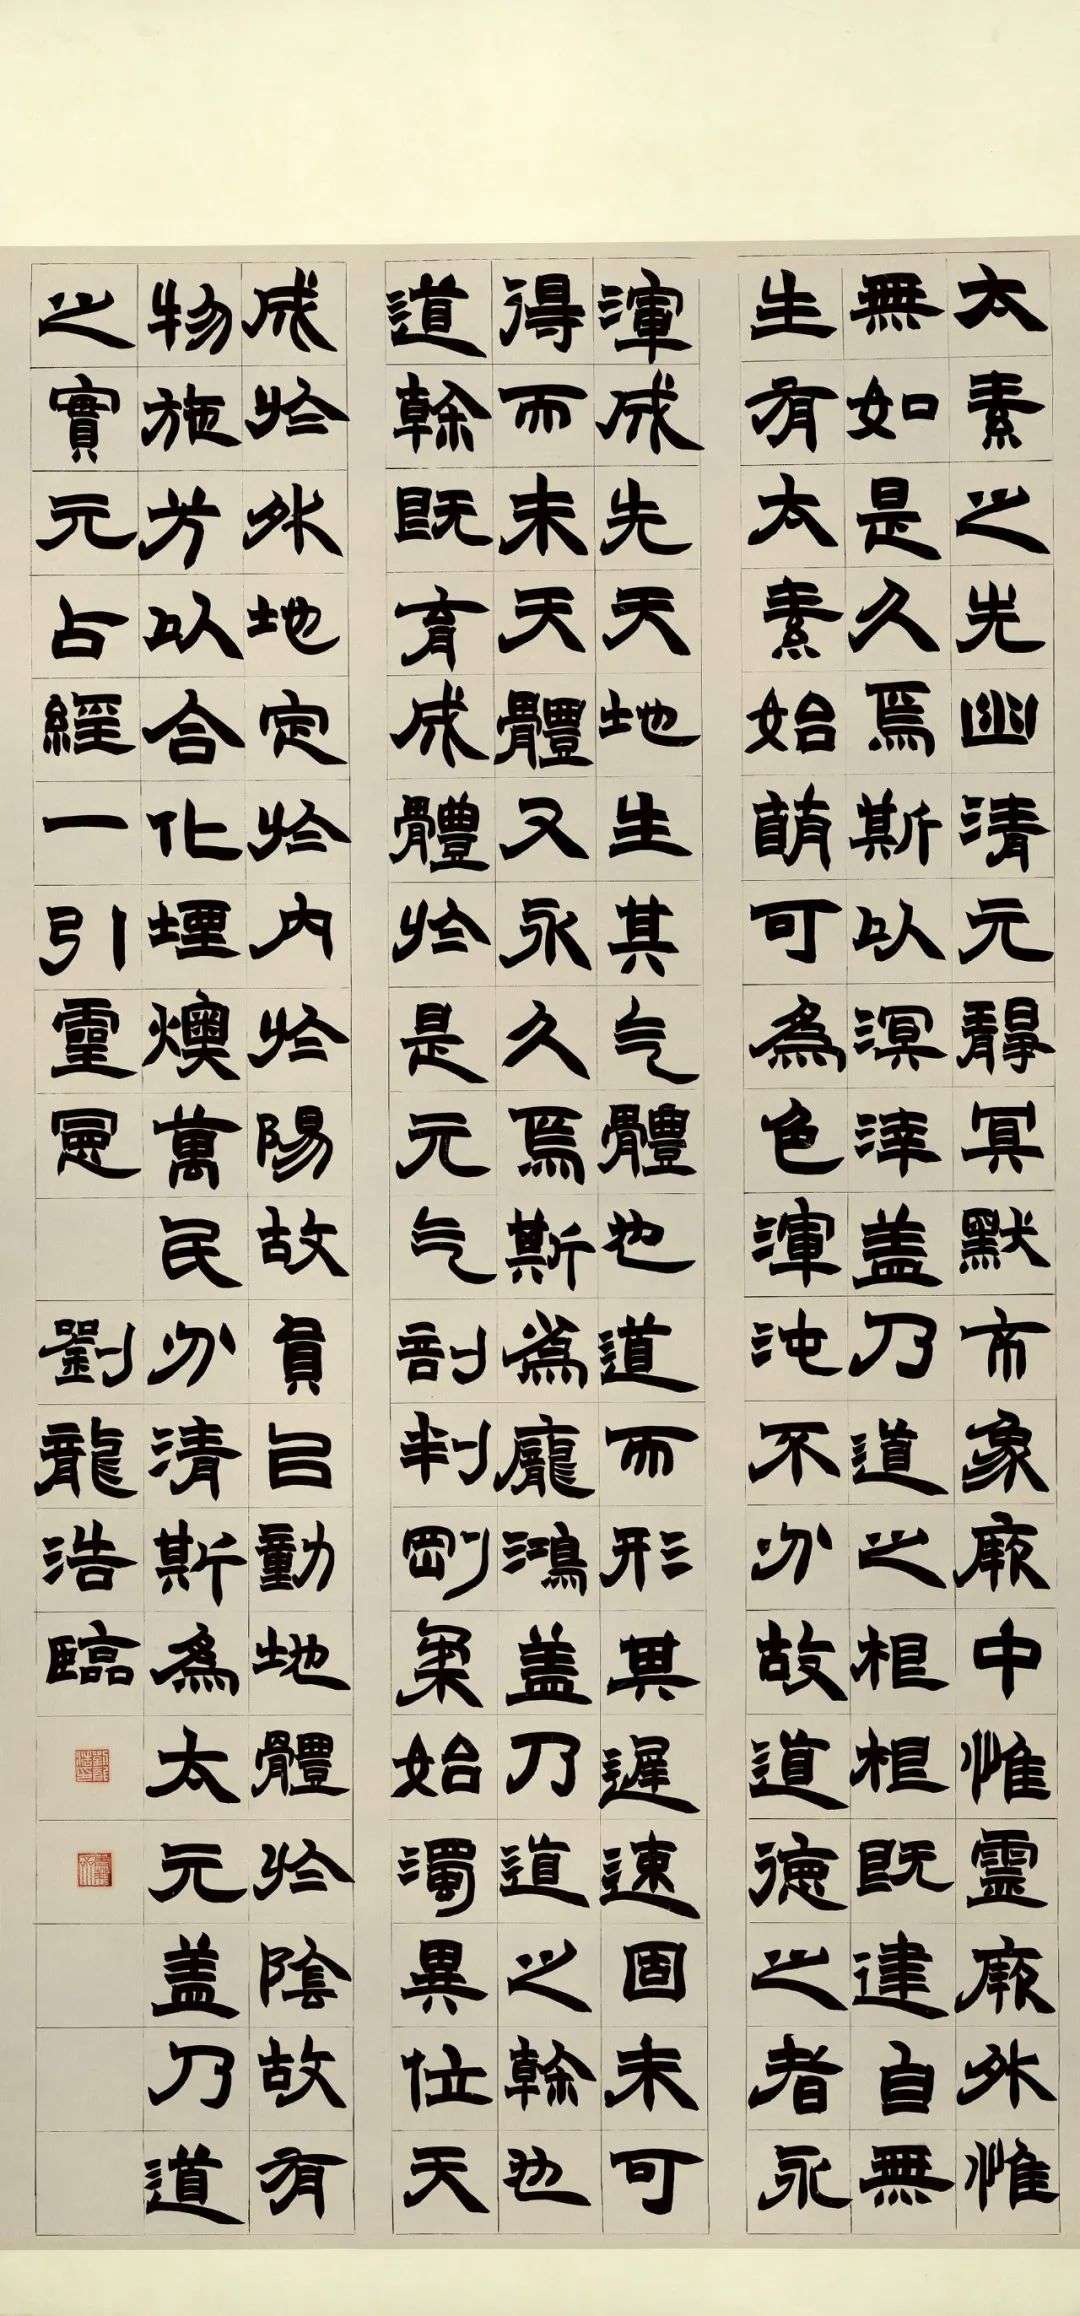 太素之先幽清元靜冥默市象厥中惟靈厥外惟
無如是久焉斯以溟涬盖乃道之根根既建自無
生有太素始萌可為色渾沌不分故道德之者永
渾成先天地生其气體也道而形其遲速固未可
得而未天體又永久焉斯為龐鴻盖乃道之幹也
道幹既育成體於是元气剖判剛柔始濁異位天
成於外地定於內於陽故員㠯動地體於陰故有
物施芳以合化堙燠萬民分清斯為太元盖乃道
之實元占經一引靈憲 劉龍浩臨